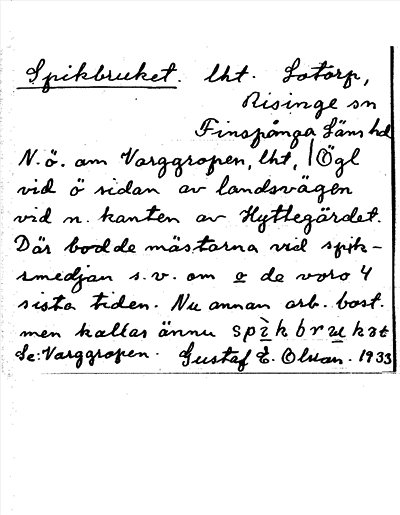 Spikbruket. lht. Lotorp,
Risinge sn
Finspånga Läns hd
N.ö. om Varggropen, lht, | Ögl
vid ö sidan av landsvägen
vid n. kanten av Hyttegärdet.
Där bodde mästarna vid spik-
smedjan s.v. om o de voro 4
sista tiden. Nu annan arb. bost.
men kallas ännu spìkbrukət
Se: Varggropen. Gustaf E. Olsson. 1933